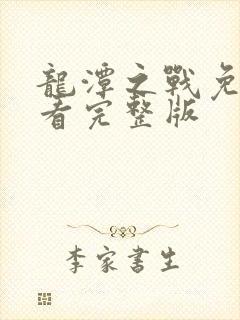 龍潭之戰免
看完整版
李家書生